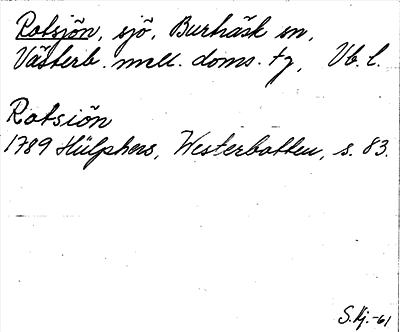 Rotsjön, sjö, Burträsk sn,
Västerb. mell. doms. tg, Vb. l.
Rotsiön
1789 Hülphers, Westerbotten, s. 83.
S. Hj. -61